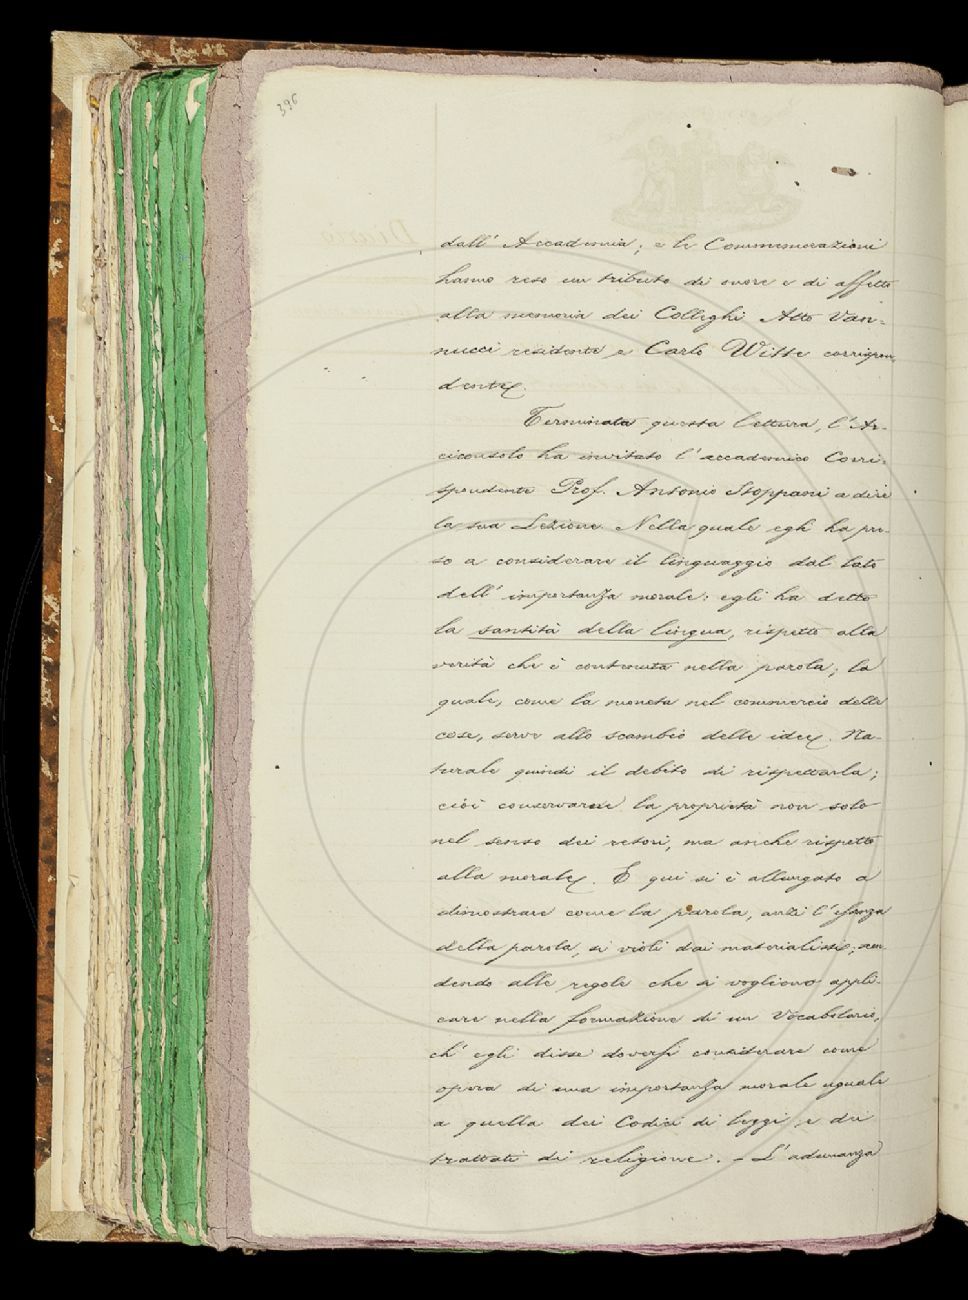 396
dall' Accademia; e le Commemorazioni
hanno reso un tributo di onore e di affetto
alla memoria dei Colleghi Atto Van-
nucci residente e Carlo Witte corrispon-
dente.
Terminata questa lettura, l'Ar-
ciconsolo ha invitato l'accademico Corri-
spondente Prof. Antonio Stoppani a dire
la sua Lezione. Nella quale egli ha pre-
so a considerare il linguaggio dal lato
dell' importanza morale: egli ha detto
la santità della lingua, rispetto alla
verità che è contenuta nella parola; la
quale, come la moneta nel commercio delle
cose, serve allo scambio delle idee. Na-
turale quindi il debito di rispettarla;
cioè conservarne la proprietà non solo
nel senso dei retori, ma anche rispetto
alla morale. E qui si è allargato a
dimostrare come la parola, anzi l'essenza
della parola, si violi dai materialisti;
dendo alle regole che si vogliono appli-
care nella formazione di un Vocabolario,
ch' egli disse doversi considerare come
opera di una importanza morale uguale
a quella dei Codici di leggi e dei
trattati di religione. - L'adunanza